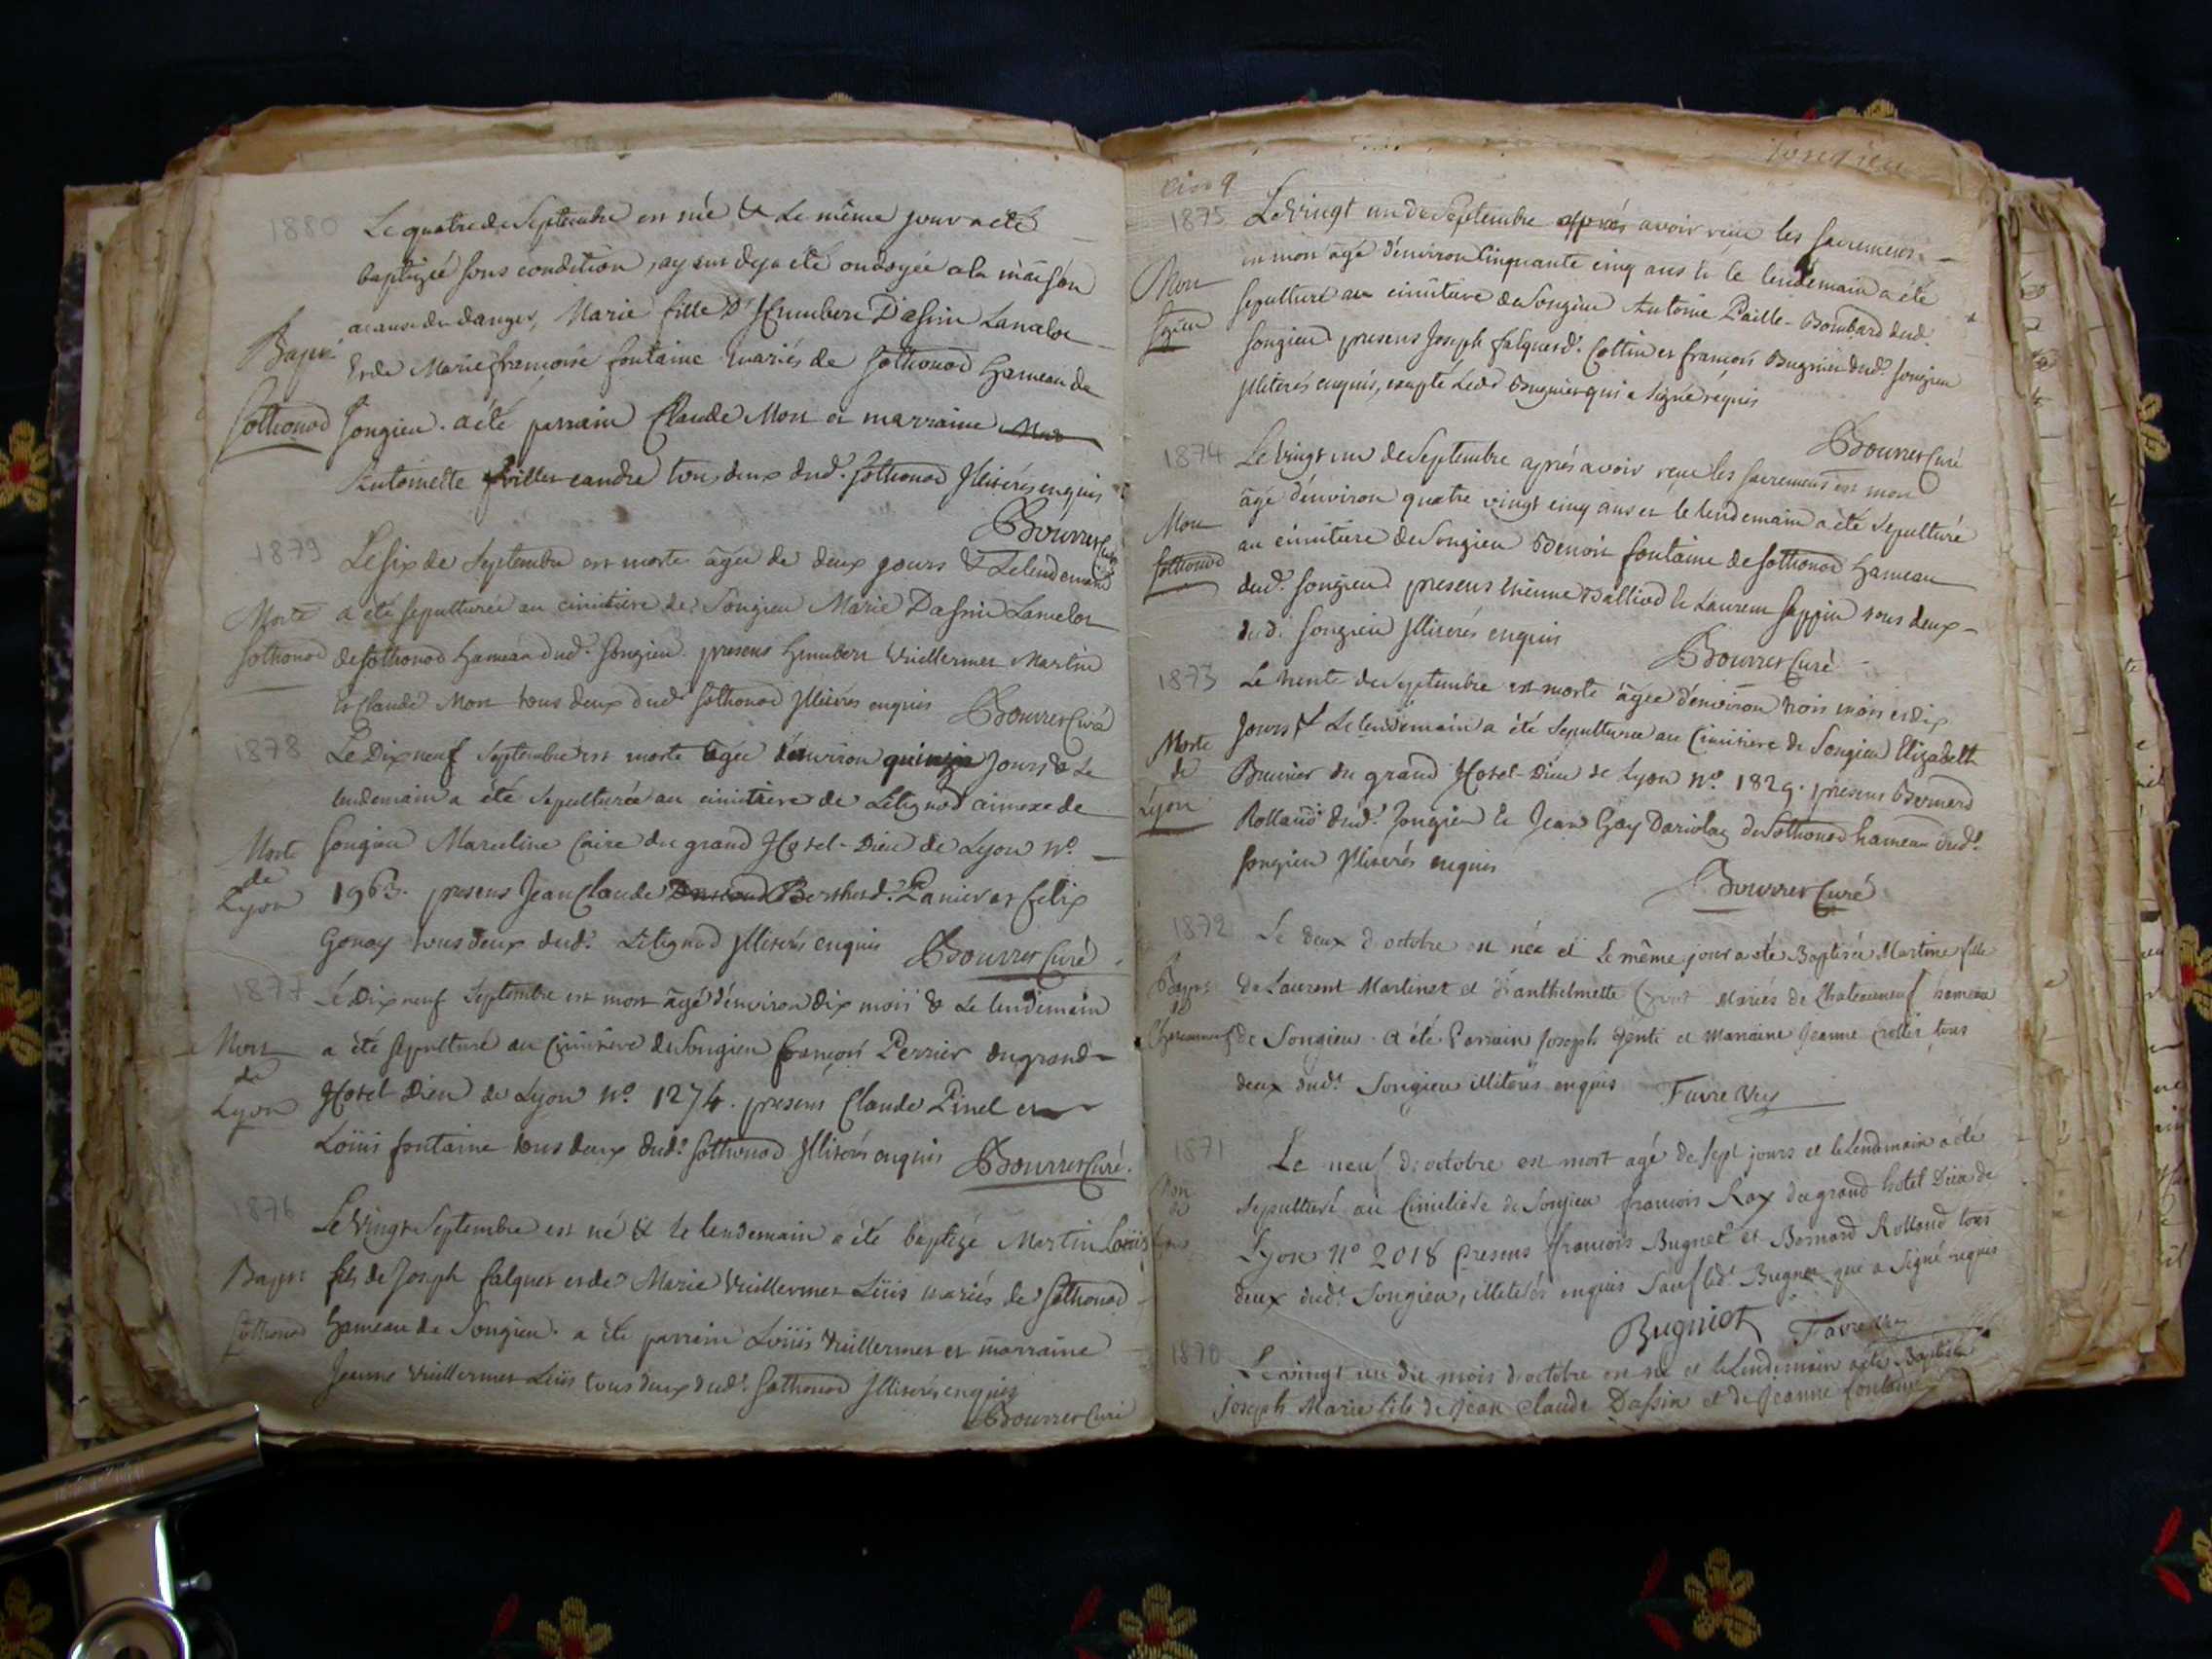 1880 Le quatre de Septembre est née & Le même jour a été
baptizée sous condition, ayant deja été ondoyée a la maison
Bapt. a cause du danger, Marie fille D'Humbert Dassin Lancelot
et de Marie françoise fontaine mariés de Sothonod hameau de
Sothonod Songieu. a été parrain Claude Mon et marraine
Antoinette tous deux dud. Sothonod Illiterés enquis
Bourret Curé
1879 Le six de Septembre est morte âgée de deux jours & Le lendemain
Morte a été sepulturée au cimitiere de Songieu Marie Dassin Lancelot
Sothonod de Sothonod hameau dud. Songieu. presens humbert Vuillermet Martin
et Claude Mon tous deux dud. Sothonod Illiterés enquis Bourret Curé
1878 Le Dix neuf Septembre est morte âgée d'environ quinze Jours & Le
lendemain a été sepulturée au cimitiere de Lilignod annexe de
Morte Songieu Marceline Caire du grand Hotel-Dieu de Lyon N°.
de Lyon 1963. presens Jean Claude Berthet d. Panier et felix
Gonay tous deux dud. Lilignod Illiterés enquis Bourret Curé
1877 Le Dix neuf Septembre est mort âgé d'environ dix mois & Le lendemain
Mort a été sepulturé au Cimitiere de Songieu françois Perrier du grand
de Lyon Hotel Dieu de Lyon N°. 1274. presens Claude Pinel et
Loüis fontaine tous deux dud. Sothonod Illiterés enquis Bourret Curé.
1876 Le Vingt Septembre est né & le lendemain a été baptizé Martin Loüis
Bapt. fils de Joseph falquet et de Marie Vuillermet Liüis mariés de Sothonod
Sothonod hameau de Songieu. a été parrain Loüis Vuillermet et marraine
Jeanne Vuillermet Liüis tous deux dud. Sothonod Illiterés enquis
Bourret Curé
Songieu
1875 Le Vingt un de Septembre après avoir reçu les sacremens
Mort est mort âgé d'environ Cinquante cinq ans & le lendemain a été
sepulturé au cimitiere de Songieu Antoine Paille-Bombard dud.
Songieu presens Joseph falquet d. Collin et françois Bugniet dud. Songieu
Illiterés enquis, excepté Led. Bugniet qui a signé requis
Bourret Curé
1874 Le Vingt un de Septembre après avoir reçu les sacremens est mort
Mort âgé d'environ quatre vingt cinq ans et le lendemain a été sepulturé
Sothonod au cimitiere de Songieu Benoit fontaine de Sothonod hameau
dud. Songieu presens Etienne Balliod & Laurent Sappin tous deux
dud. Songieu Illiterés enquis
Bourret Curé
1873 Le trente de Septembre est morte âgée d'environ trois mois et dix
Morte Jours & Le lendemain a été sepulturée au Cimitiere de Songieu Elizabeth
de Brunier du grand Hotel-Dieu de Lyon N°. 1829. presens Bernard
Lyon Rolland dud. Songieu & Jean Gay Dariolay de Sothonod hameau dud.
Songieu Illiterés enquis
Bourret Curé
1872 Le deux d'octobre est née et le même jour a été Baptisée Martine fille
Bapt. de Laurent Martinet et d'anthelmette mariés de Chateauneuf hameau
Chateauneuf de Songieu. a été Parrain Joseph Genti et Marraine Jeanne tous
deux dud. Songieu illiterés enquis Favre Vic
1871 Le neuf d'octobre est mort agé de sept jours et le lendemain a été
Mort sepulturé au Cimitiere de Songieu francois Ray du grand hotel Dieu de
de Lyon Lyon N° 2018 Presens francois Bugniet et Bernard Rolland tous
deux dud. Songieu, illiterés enquis Sauf led. Bugniet qui a Signé requis
Bugniet Favre Vic
1870 Le vingt un du mois d'octobre est né et le lendemain a été Baptisé
Joseph Marie fils de jean Claude Dassin et de jeanne fontaine